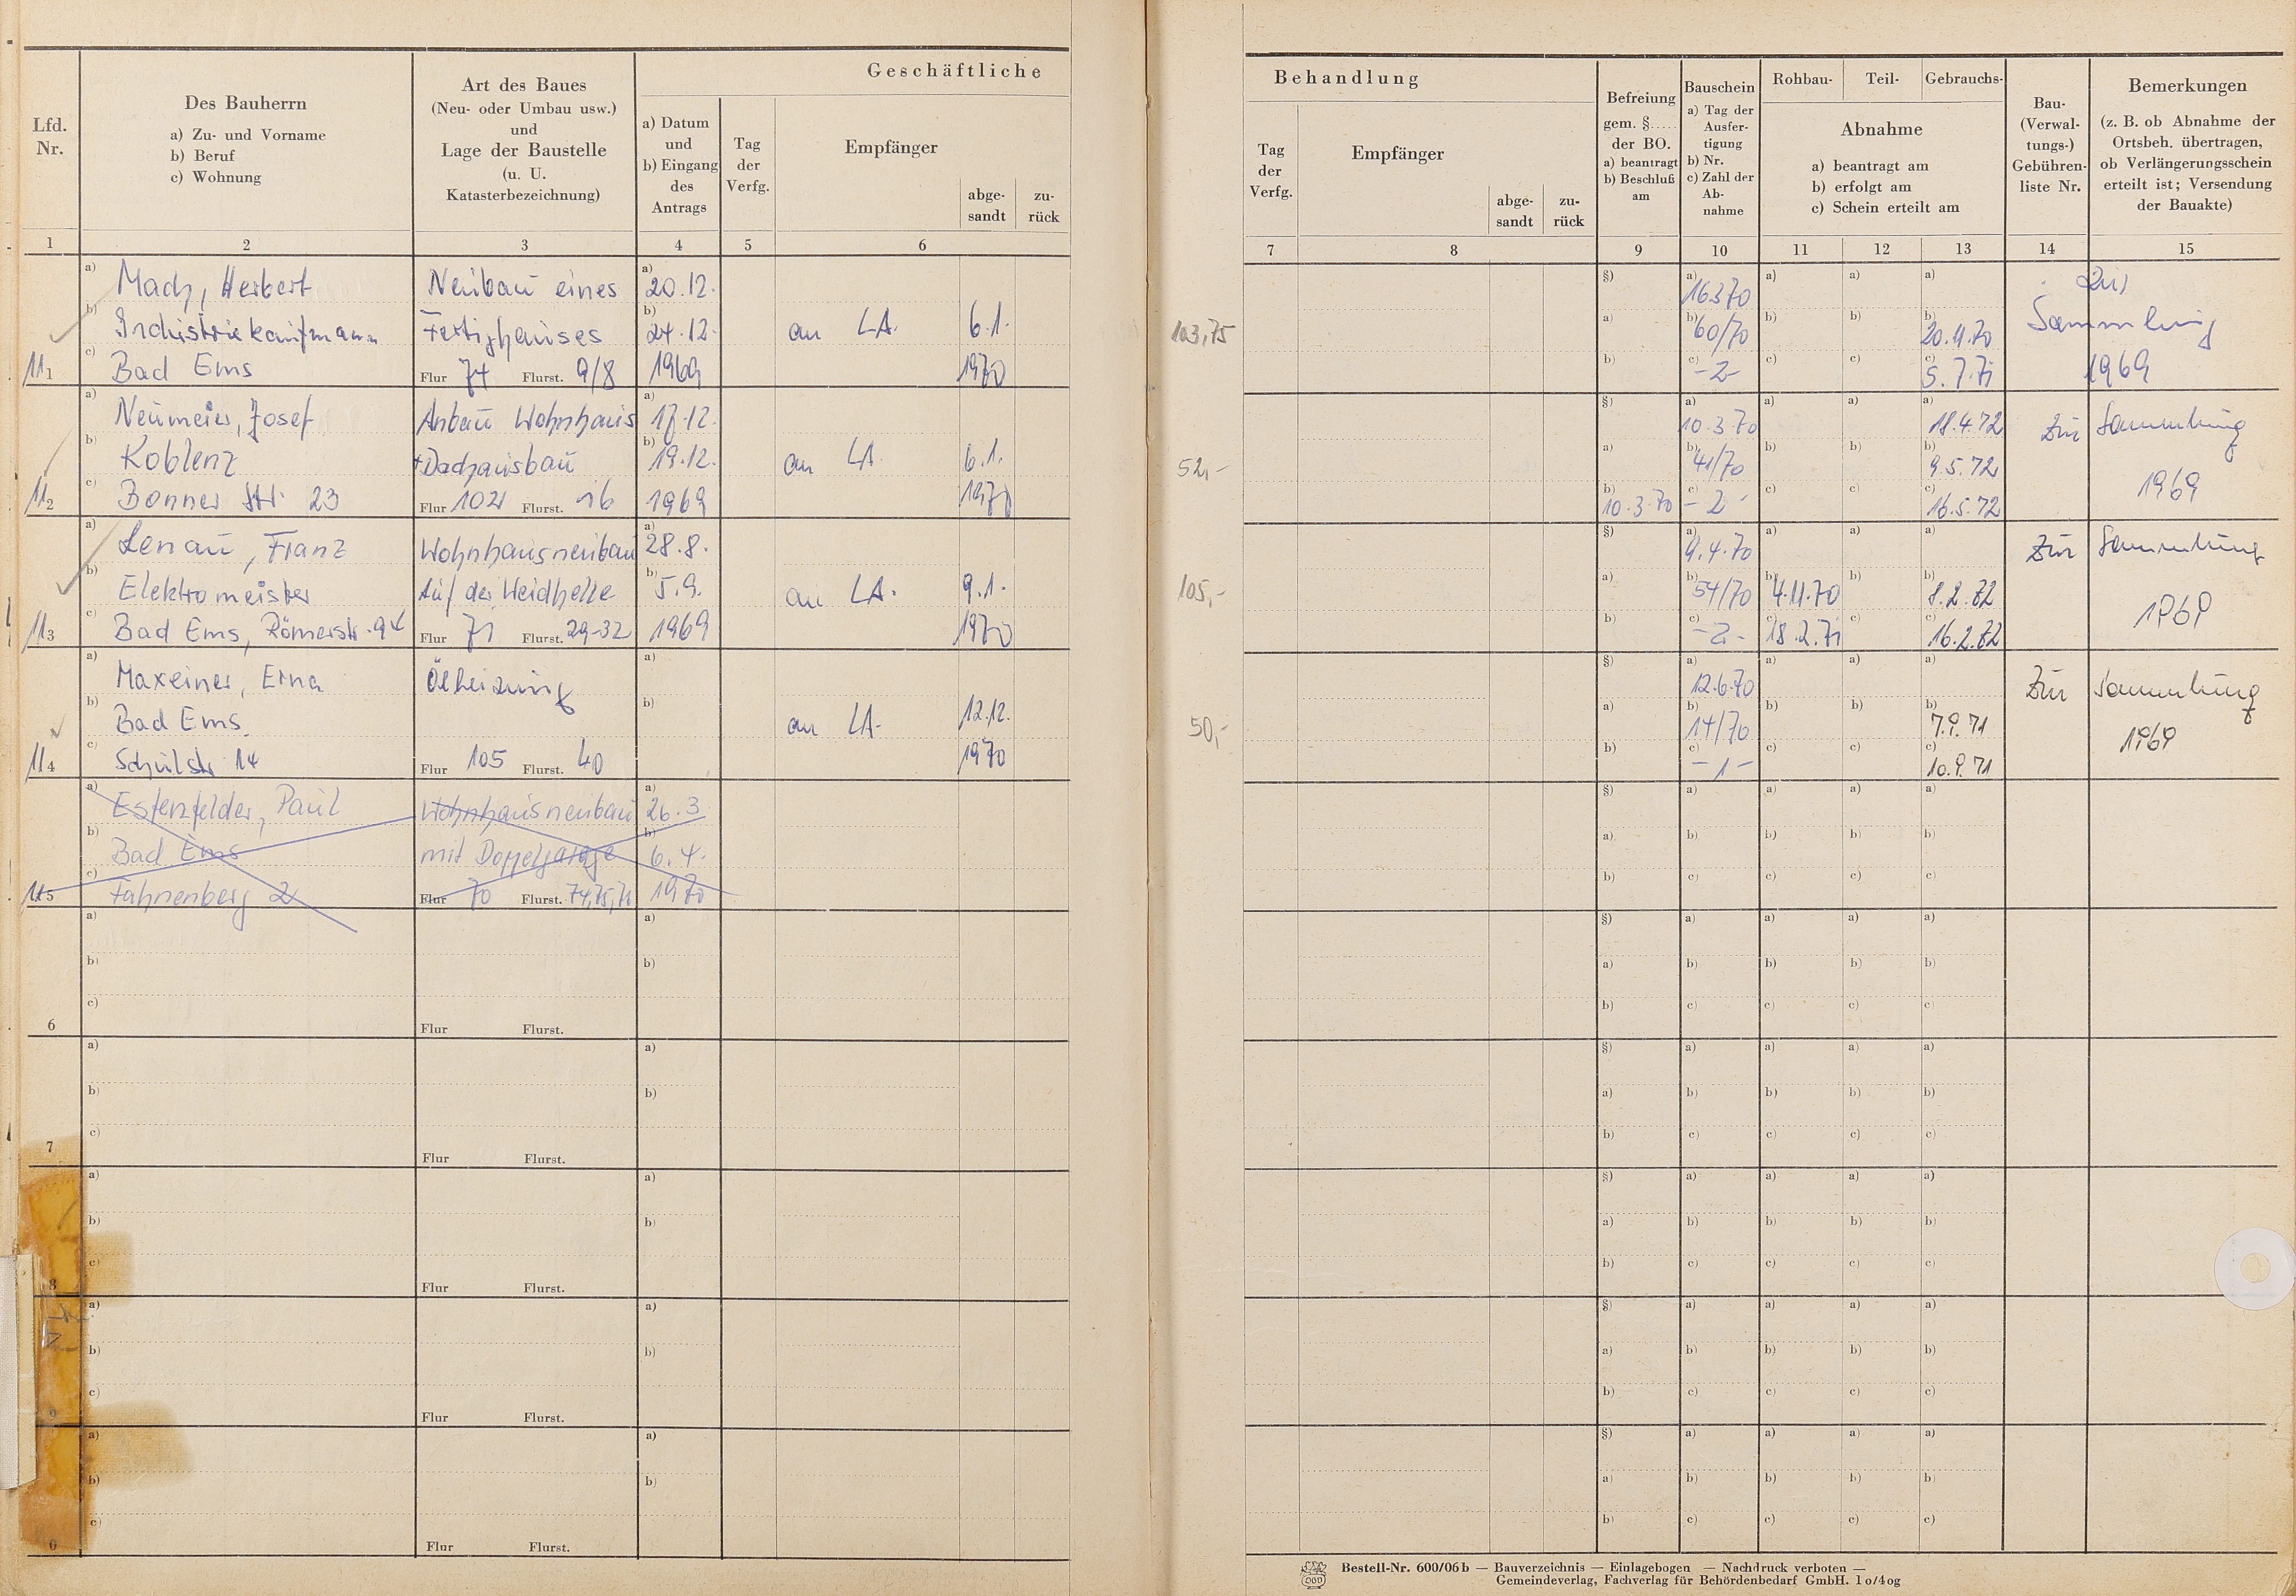 Geschäftliche
Lfd.
Nr.
Des Bauherrn
a) Zu- und Vorname
b) Beruf
c) Wohnung
Art des Baues
(Neu- oder Umbau usw.)
und
Lage der Baustelle
(u. U.
Katasterbezeichnung)
a) Datum
und
b) Eingang
des
Antrags
Tag
der
Verfg.
Empfänger
abge-
sandt
zu-
rück
1 2 3 4 5 6
a) Mach, Herbert Neubau eines a) 20.12.
b) Industriekaufmann Fertighauses b) 24.12. an LA. 6.1.
11 1 c) Bad Ems Flur 74 Flurst. 9/8 1969 1970
a) Neumeier, Josef Anbau Wohnhaus a) 17.12.
b) Koblenz + Dachausbau b) 19.12. an LA 6.1.
11 2 c) Bonner Str. 23 Flur 102 Flurst. 16 1969 1970
a) Lenau, Franz Wohnhausneubau a) 28.8.
b) Elektromeister Auf der Heidhelle b) 5.9. an LA. 9.1.
11 3 c) Bad Ems, Römerstr. 94 Flur 71 Flurst. 29-32 1969 1970
a) Maxeiner, Erna Ölheizung a)
b) Bad Ems. b) an LA. 12.12.
11 4 c) Schulstr. 14 Flur 105 Flurst. 40 1970
a) Esterzfelder, Paul Wohnhausneubau a) 26.3
b) Bad Ems mit Doppelgarage b) 6.4.
11 5 c) Fahnenberg 2 Flur 70 Flurst. 74,75,76 1970
a) a)
b) b)
c)
6 Flur Flurst.
a) a)
b) b)
c)
7 Flur Flurst.
a) a)
b) b)
c)
8 Flur Flurst.
a) a)
b) b)
c)
9 Flur Flurst.
a) a)
b) b)
c)
0 Flur Flurst.
Behandlung
Tag
der
Verfg.
Empfänger
abge-
sandt
zu-
rück
Befreiung
gem. §.....
der BO.
a) beantragt
b) Beschluß
am
Bauschein
a) Tag der
Ausfer-
tigung
b) Nr.
c) Zahl der
Ab-
nahme
Rohbau- Teil- Gebrauchs-
Abnahme
a) beantragt am
b) erfolgt am
c) Schein erteilt am
Bau-
(Verwal-
tungs-)
Gebühren-
liste Nr.
Bemerkungen
(z. B. ob Abnahme der
Ortsbeh. übertragen,
ob Verlängerungsschein
erteilt ist; Versendung
der Bauakte)
7 8 9 10 11 12 13 14 15
§) a) 16.3.70 a) a) a) Zur
103,75 a) b) 60/70 b) b) b) 20.11.70 Sammlung
b) c) -2- c) c) c) 5.7.71 1969
§) a) 10.3.70 a) a) a) 18.4.72 Zur Sammlung
52,- a) b) 41/70 b) b) b) 9.5.72
b) 10.3.70 c) -2- c) c) c) 16.5.72 1969
§) a) 9.4.70 a) a) a) Zur Sammlung
105,- a) b) 54/70 b) 4.11.70 b) b) 8.2.82
b) c) -2- c) 18.2.71 c) c) 16.2.82 1969
§) a) 12.6.70 a) a) a) Zur Sammlung
50,- a) b) 14/70 b) b) b) 7.9.71
b) c) -1- c) c) c) 10.9.71 1969
§) a) a) a) a)
a) b) b) b) b)
b) c) c) c) c)
§) a) a) a) a)
a) b) b) b) b)
b) c) c) c) c)
§) a) a) a) a)
a) b) b) b) b)
b) c) c) c) c)
§) a) a) a) a)
a) b) b) b) b)
b) c) c) c) c)
§) a) a) a) a)
a) b) b) b) b)
b) c) c) c) c)
§) a) a) a) a)
a) b) b) b) b)
b) c) c) c) c)
Bestell-Nr. 600/06 b — Bauverzeichnis — Einlagebogen — Nachdruck verboten —
Gemeindeverlag, Fachverlag für Behördenbedarf GmbH. 10/40g